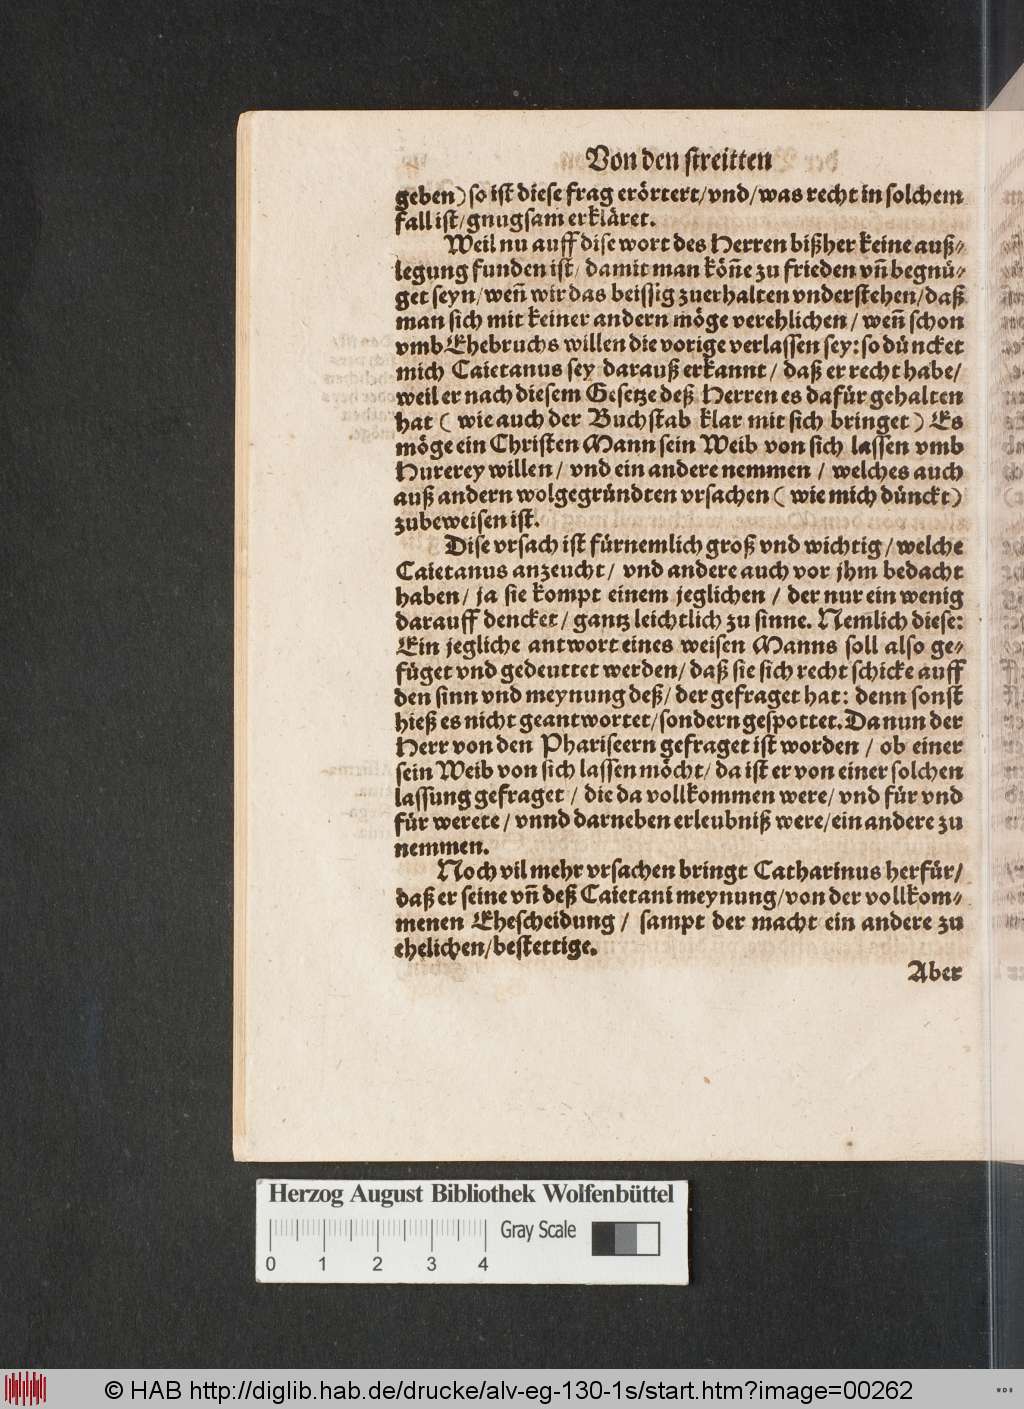 Von den streitten
geben) so ist diese frag erörtert/vnd/was recht in solchem
fall ist/gnugsam erkläret.
Weil nu auff dise wort des Herren bißher keine auß⸗
legung funden ist/ damit man köñe zu frieden vñ begnü⸗
get seyn/weñ wir das beissig zuerhalten vnderstehen/daß
man sich mit keiner andern möge verehlichen/ weñ schon
vmb Ehebruchs willen die vorige verlassen sey: so düncket
mich Caietanus sey darauß erkannt/ daß er recht habe/
weil er nach diesem Gesetze deß Herren es dafür gehalten
hat ( wie auch der Buchstab klar mit sich bringet) Es
möge ein Christen Mann sein Weib von sich lassen vmb
Hurerey willen/ vnd ein andere nemmen / welches auch
auß andern wolgegründten vrsachen ( wie mich dünckt)
zubeweisen ist.
Dise vrsach ist fürnemlich groß vnd wichtig/welche
Caietanus anzeucht/ vnd andere auch vor jhm bedacht
haben/ ja sie kompt einem jeglichen / der nur ein wenig
darauff dencket/ gantz leichtlich zu sinne. Nem̃lich diese:
Ein jegliche antwort eines weisen Manns soll also ge⸗
füget vnd gedeuttet werden/ daß sie sich recht schicke auff
den sinn vnd meynung deß/ der gefraget hat: denn sonst
hieß es nicht geantwortet/sondern gespottet. Da nun der
Herr von den Phariseern gefraget ist worden / ob einer
sein Weib von sich lassen möcht/ da ist er von einer solchen
lassung gefraget / die da vollkommen were/ vnd für vnd
für werete/ vnnd darneben erleubniß were/ein andere zu
nemmen.
Noch vil mehr vrsachen bringt Catharinus herfür/
daß er seine vñ deß Caietani meynung/von der vollkom⸗
menen Ehescheidung/ sampt der macht ein andere zu
ehelichen/bestettige.
Aber
Herzog August Bibliothek Wolfenbüttel
Gray Scale
0 1 2 3 4
© HAB http://diglib.hab.de/drucke/alv-eg-130-1s/start.htm?image=00262